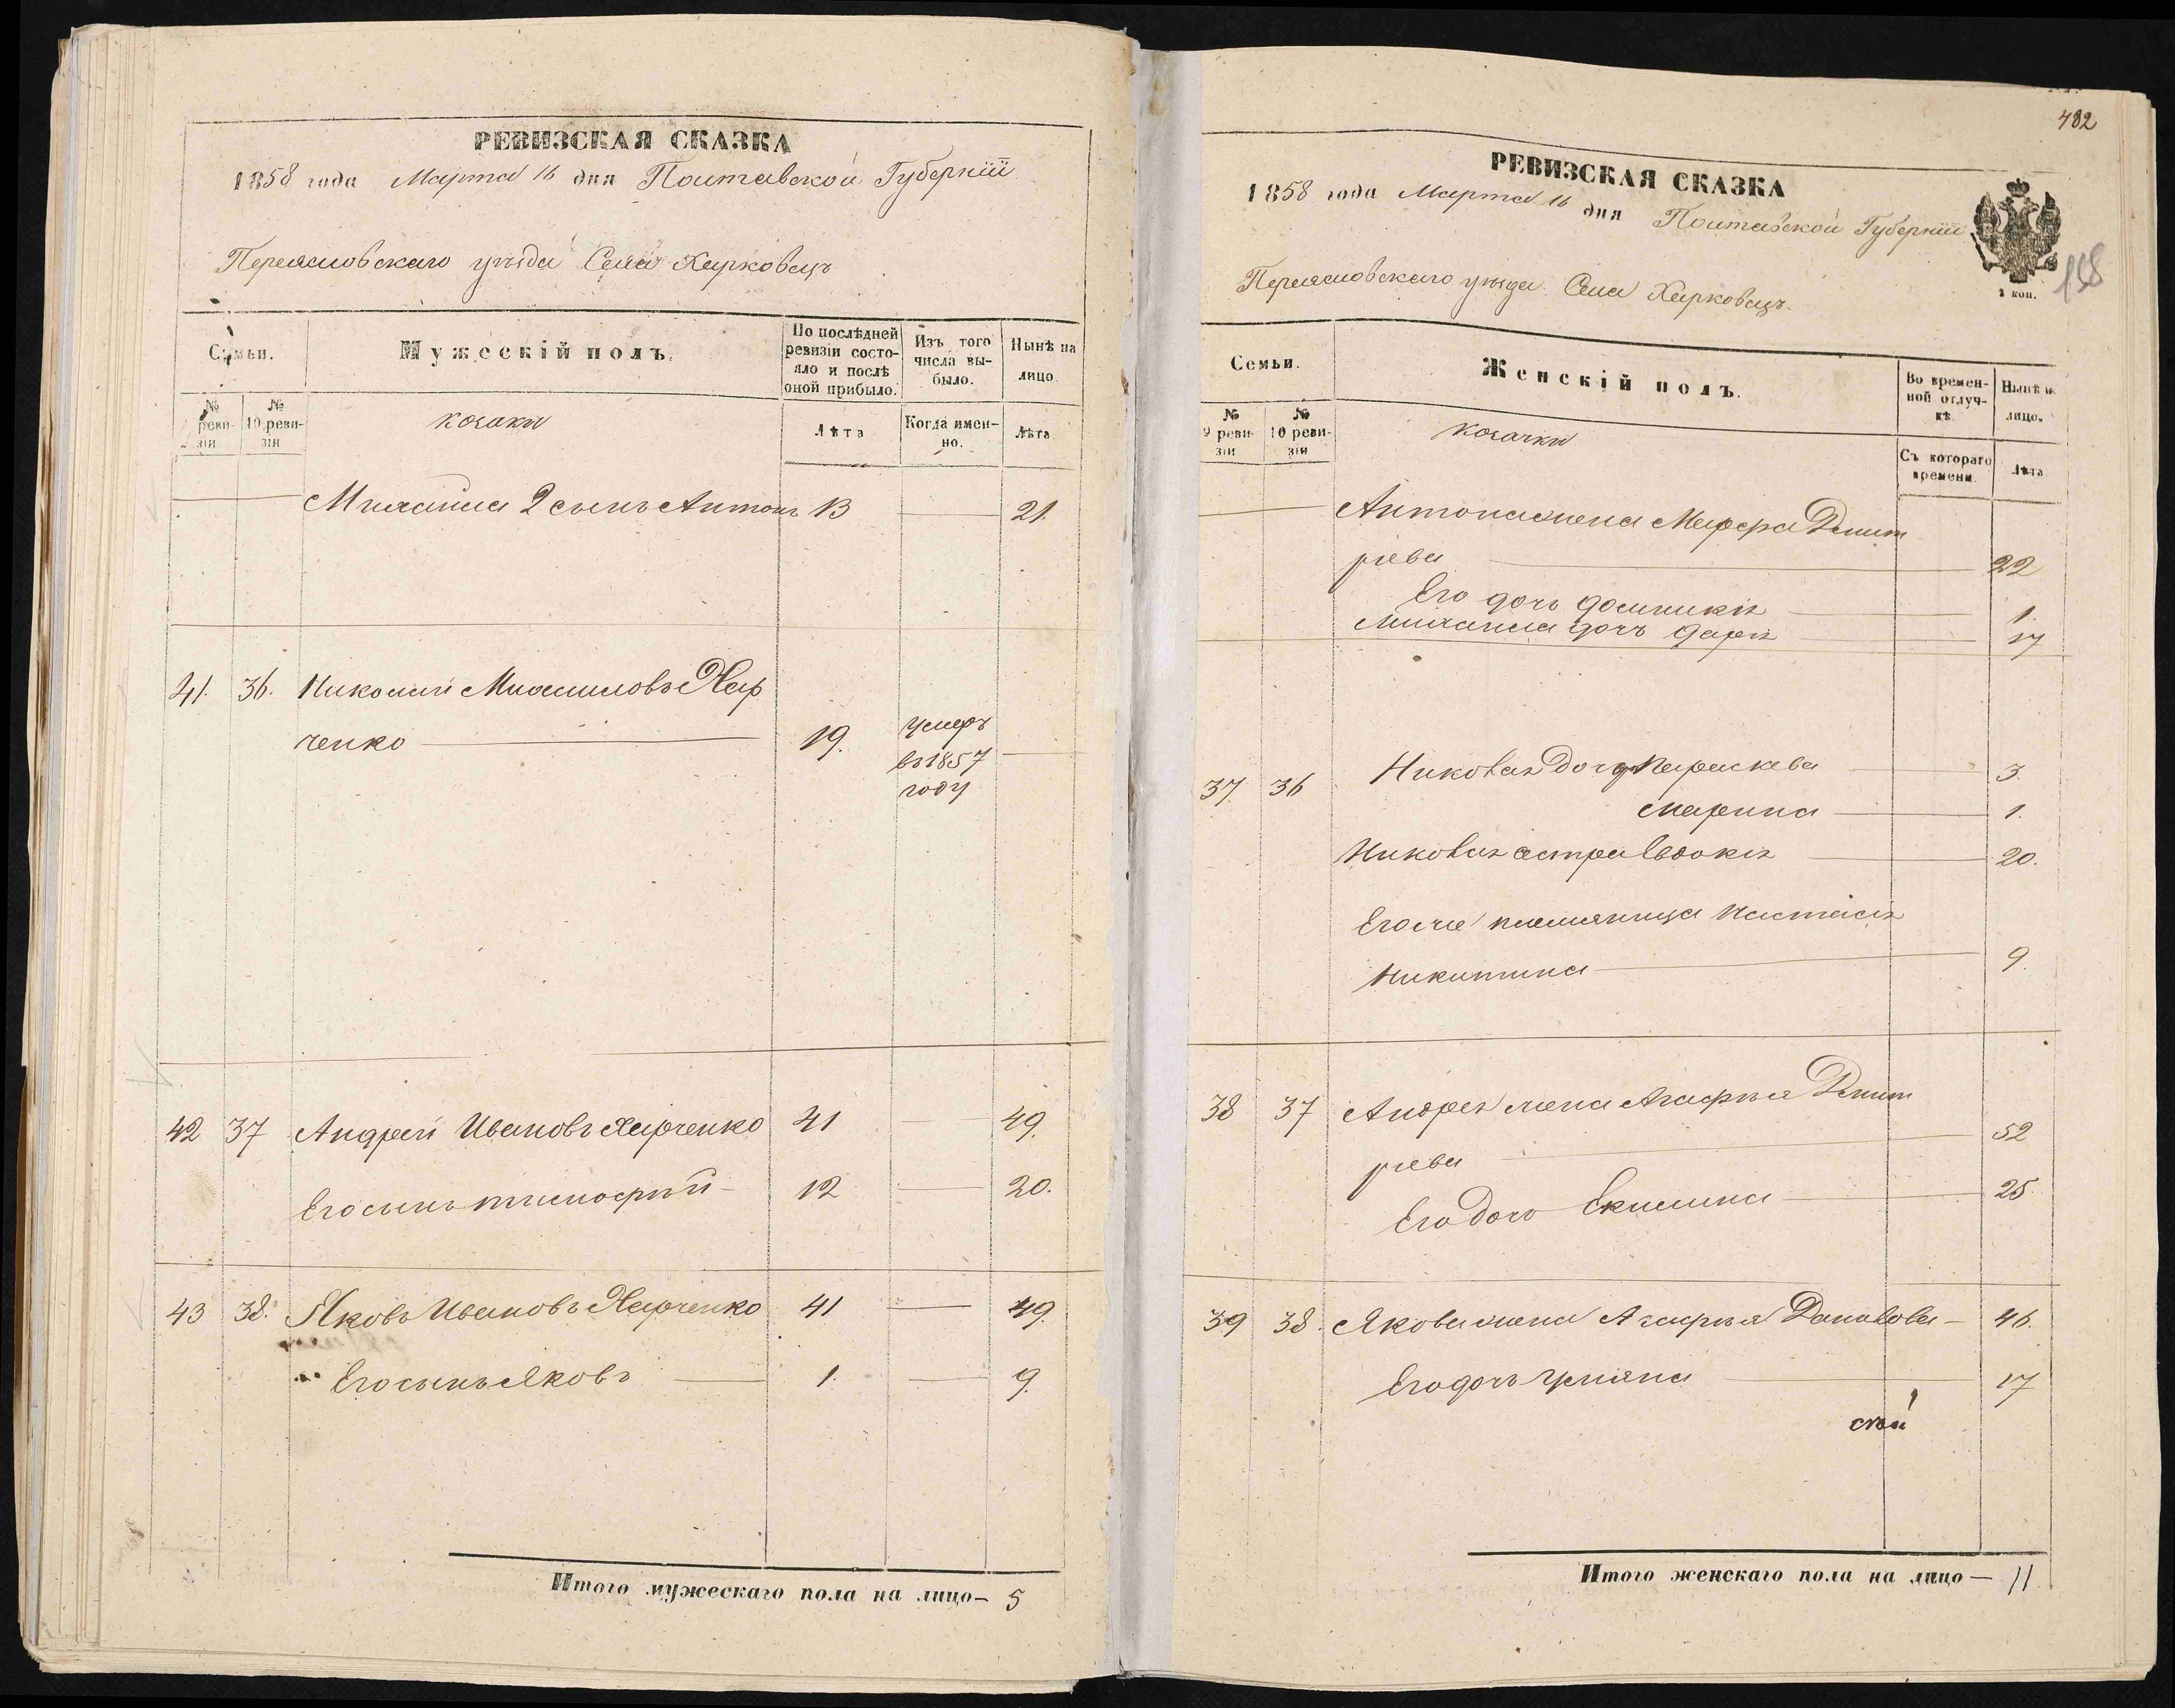 РЕВИЗСКАЯ СКАЗКА
1858 года Марта 16 дня Полтавской Губерніи
Переясловскаго уѣзда Села Харковецъ
Семьи.
Мужескій полъ.
По послѣдней ревизіи состояло и послѣ оной прибыло.
Изъ того числа выбыло.
Нынѣ на лицо.
№ ревизіи
№ 10 ревизіи
козаки
Лѣта
Когда именно.
Лѣта
Михаила 2 сынъ Антонъ 13 — 21.
41. 36. Николай Михаиловъ Хар
ченко — 19. умеръ
въ 1857
году —
42 37 Андрей Ивановъ Харченко 41 — 49.
Его сынъ Тимофѣй — 12 — 20.
43 38. Яковъ Ивановъ Харченко 41 — 49.
Его сынъ Яковъ — 1. — 9.
Итого мужескаго пола на лицо — 5
482
РЕВИЗСКАЯ СКАЗКА
1858 года Марта 16 дня Полтавской Губерніи
1 коп.
158
Переясловскаго уѣзда Села Харковецъ.
Семьи.
Женскій полъ.
Во временной отлучкѣ
Нынѣ на лицо.
№ 9 ревизіи
№ 10 ревизіи
козачки
Съ котораго времени.
Лѣта
Антона жена Марфа Дмит
ріева — 22
Его дочь Домникія — 1.
Михаила дочь Дарія — 17
37 36 Николая дочь Параскева — 3.
Марина — 1.
Николая сестра Евдокія — 20.
Его же племянница Настасія
Никитина — 9.
38 37 Андрея жена Агафья Дмит
ріева — 52
Его дочь Екилина — 25.
39 38. Якова жена Агафья Данилова — 46.
Его дочь Уліяна — 17
Итого женскаго пола на лицо — 11